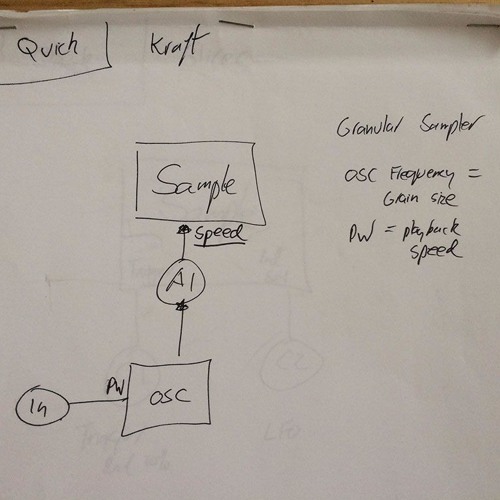 Quich
Kraft
Granular Sampler
OSC Frequency =
Grain size
PW = playback
speed
Sample
speed
A1
PW
OSC
In